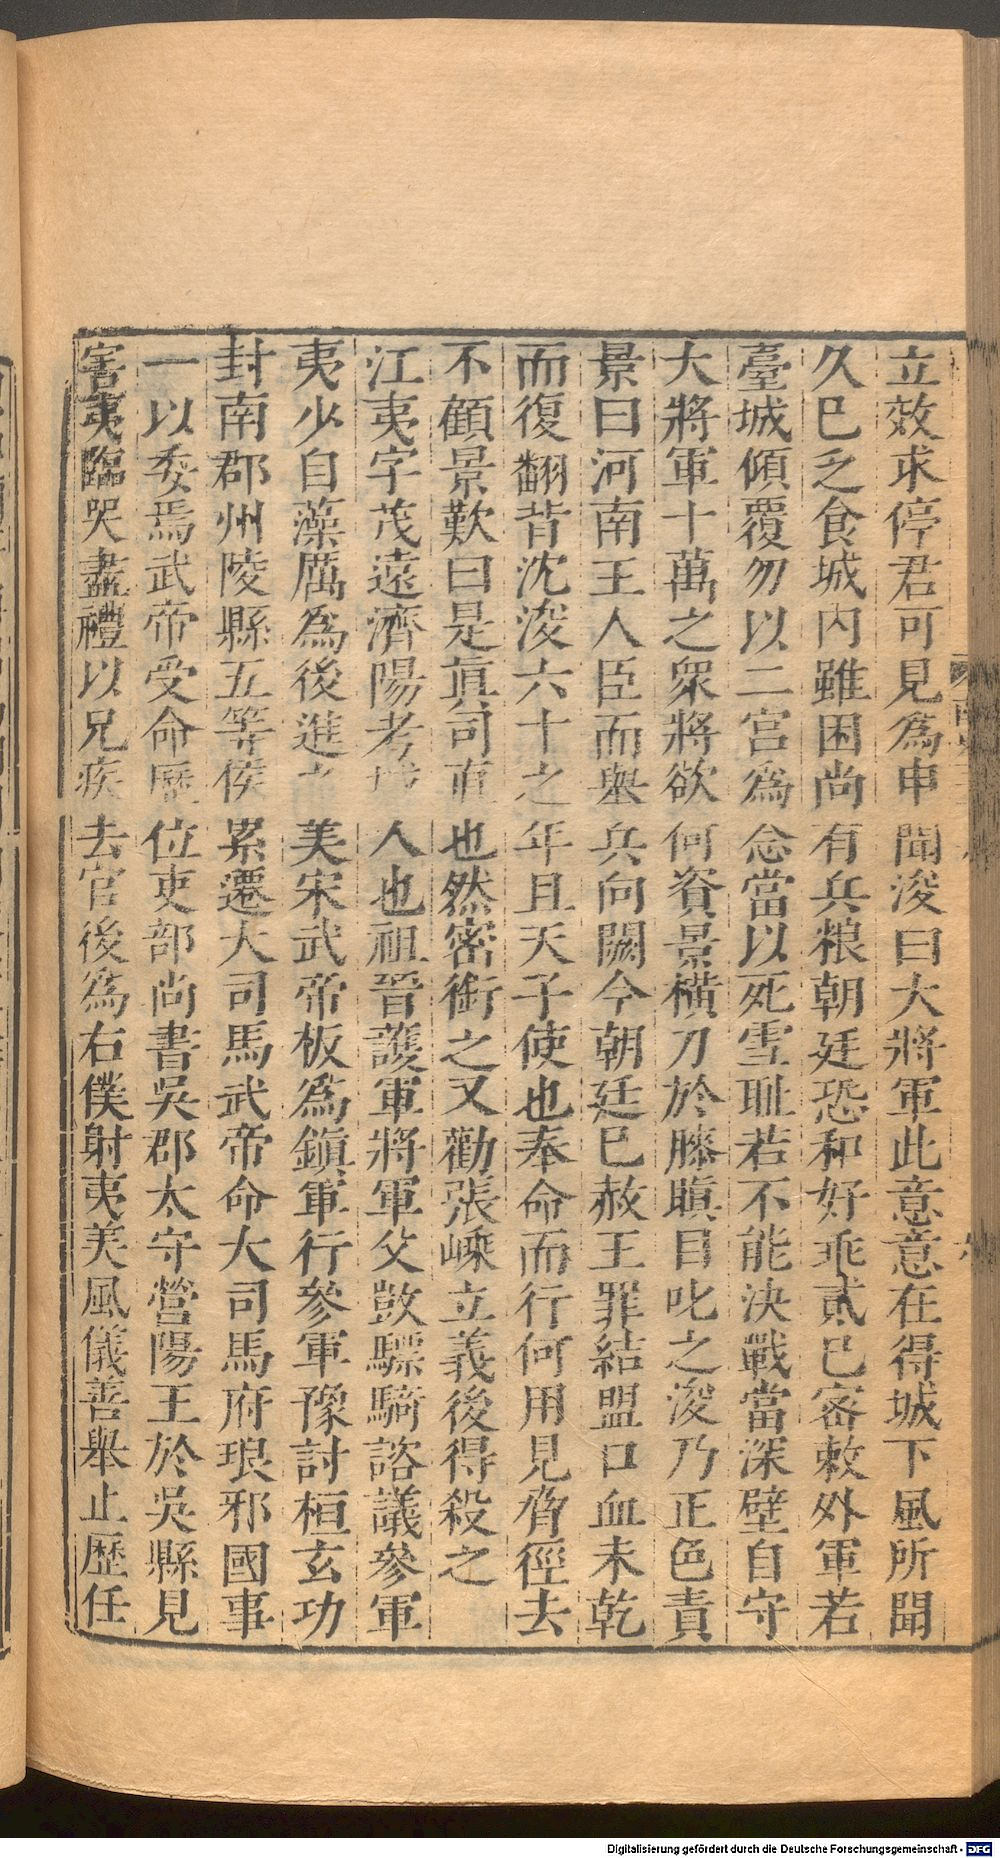 立效求停君可見為申聞浚曰大將軍此意意在得城下風所聞
久已乏食城内雖困尚有兵粮朝廷恐和好乖貳已密敕外軍若
臺城傾覆勿以二宮為念當以死雪耻若不能決戰當深壁自守
大將軍十萬之衆將欲何資景横刀於膝瞋目叱之浚乃正色責
景曰河南王人臣而舉兵向闕今朝廷已赦王罪結盟口血未乾
而復翻背沈浚六十之年且天子使也奉命而行何用見脅徑去
不顧景歎曰是眞司直也然密銜之又勸張嵊立義後得殺之
江夷字茂遠濟陽考城人也祖晉護軍將軍父敳驃騎諮議參軍
夷少自藻厲為後進之美宋武帝板為鎮軍行參軍豫討桓玄功
封南郡州陵縣五等侯累遷大司馬武帝命大司馬府琅邪國事
一以委焉武帝受命歷位吏部尚書吳郡太守營陽王於吳縣見
害夷臨哭盡禮以兄疾去官後為右僕射夷美風儀善舉止歷任
Digitalisierung gefördert durch die Deutsche Forschungsgemeinschaft - DFG